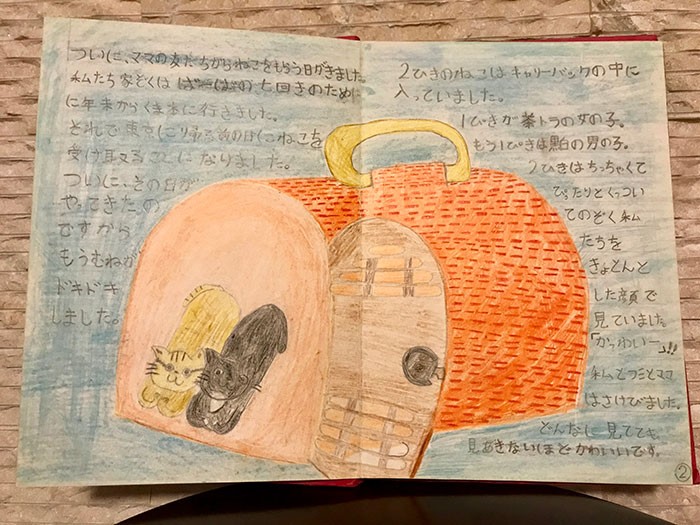 ついに、ママの友だちからねこをもらう日がきました。
私たち家ぞくは ばーばの七回きのために
に年末からくま本に行きました。
それで東京にりる前の日にこねこを
受け取ることになりました。
ついに、その日が
やってきたの
ですから
もうむねが
ドキドキ
しました。
2ひきのねこはキャリーバックの中に
入っていました。
1ぴきが茶トラの女の子。
もう1ぴきは黒白の男の子。
2ひきはちっちゃくて
ぴったりとくっつい
てのぞく私
たちを
きょとんと
した顔で
見ていました
「かっわいー」!!
私とフミとママ
はさけびました。
どんなに見てても
見あきないほどかわいいです。
②